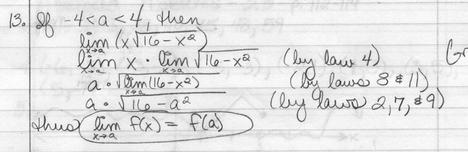 13. If -4<a<4, then
lim x→a (x√16-x²)
lim x→a x · lim x→a √16-x² (by law 4)
a · √lim x→a (16-x²) (by laws 8 & 11)
a · √16-a² (by laws 2,7, & 9)
thus lim x→a f(x) = f(a)